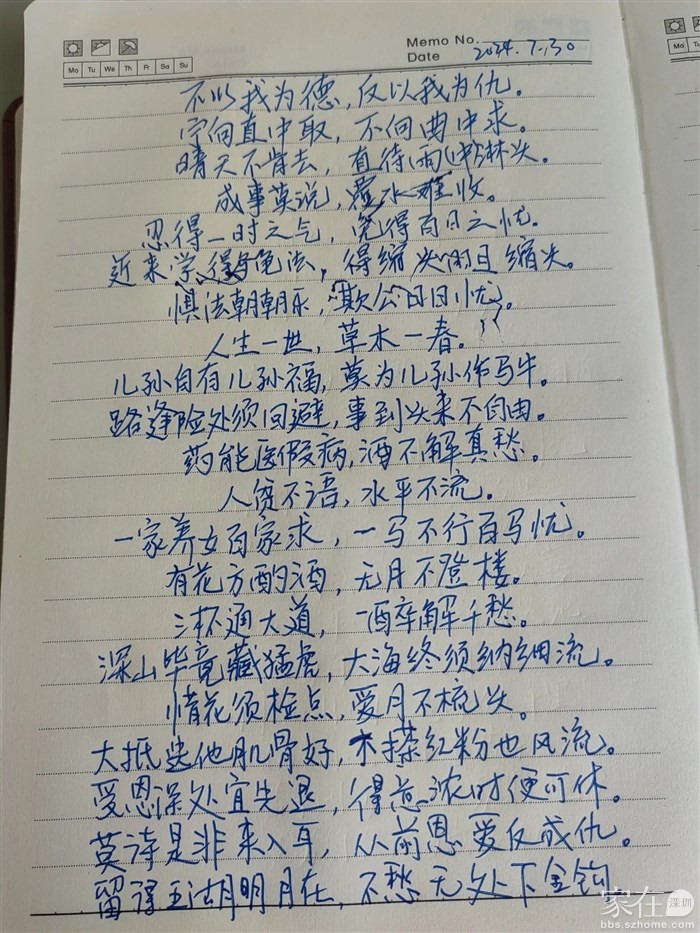 Memo No.
Mo Tu We Th Fr Sa Su
Date 2024.7.30
不以我为德，反以我为仇。
宁向直中取，不向曲中求。
晴天不肯去，直待雨淋头。
成事莫说，覆水难收。
忍得一时之气，免得百日之忧。
近来学得龟法，得缩头时且缩头。
惧法朝朝乐，欺公日日忧。
人生一世，草木一春。
儿孙自有儿孙福，莫为儿孙作马牛。
路逢险处须回避，事到头来不自由。
药能医假病，酒不解真愁。
人贫不语，水平不流。
一家养女百家求，一马不行百马忧。
有花方酌酒，无月不登楼。
三杯通大道，一醉解千愁。
深山毕竟藏猛虎，大海终须纳细流。
惜花须检点，爱月不梳头。
大抵选他肌骨好，不搽红粉也风流。
受恩深处宜先退，得意浓时便可休。
莫待是非来入耳，从前恩爱反成仇。
留得五湖明月在，不愁无处下金钩
家在深圳
bbs.szhome.com